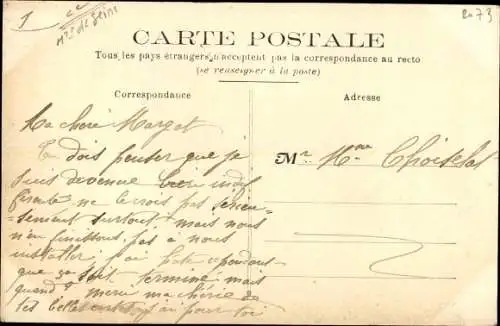 1
Hts de Seine
2073
CARTE POSTALE
Tous les pays étrangers n'acceptent pas la correspondance au recto
(se renseigner à la poste)
Correspondance
Adresse
Ma chère Margot
Tu dois penser que je
suis devenue bien indif
férente ne le crois pas sérieu
sement surtout mais nous
n'en finissons pas à nous
installer j'ai hâte cependant
que ça soit terminé mais
quand merci ma chérie de
tes belles pour toi
M^r Mme Choiselat